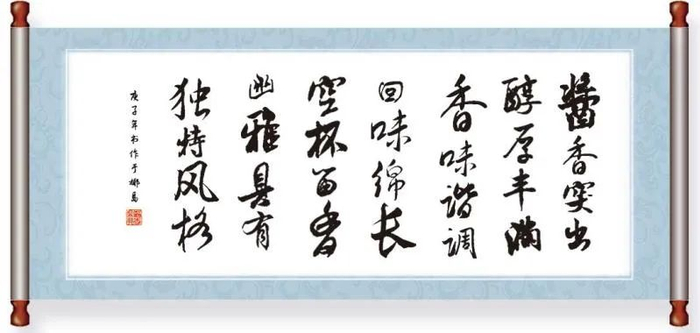 醬香突出
醇厚丰满
香味谐调
回味绵长
空杯留香
幽雅具有
独特风格
庚子年书作于